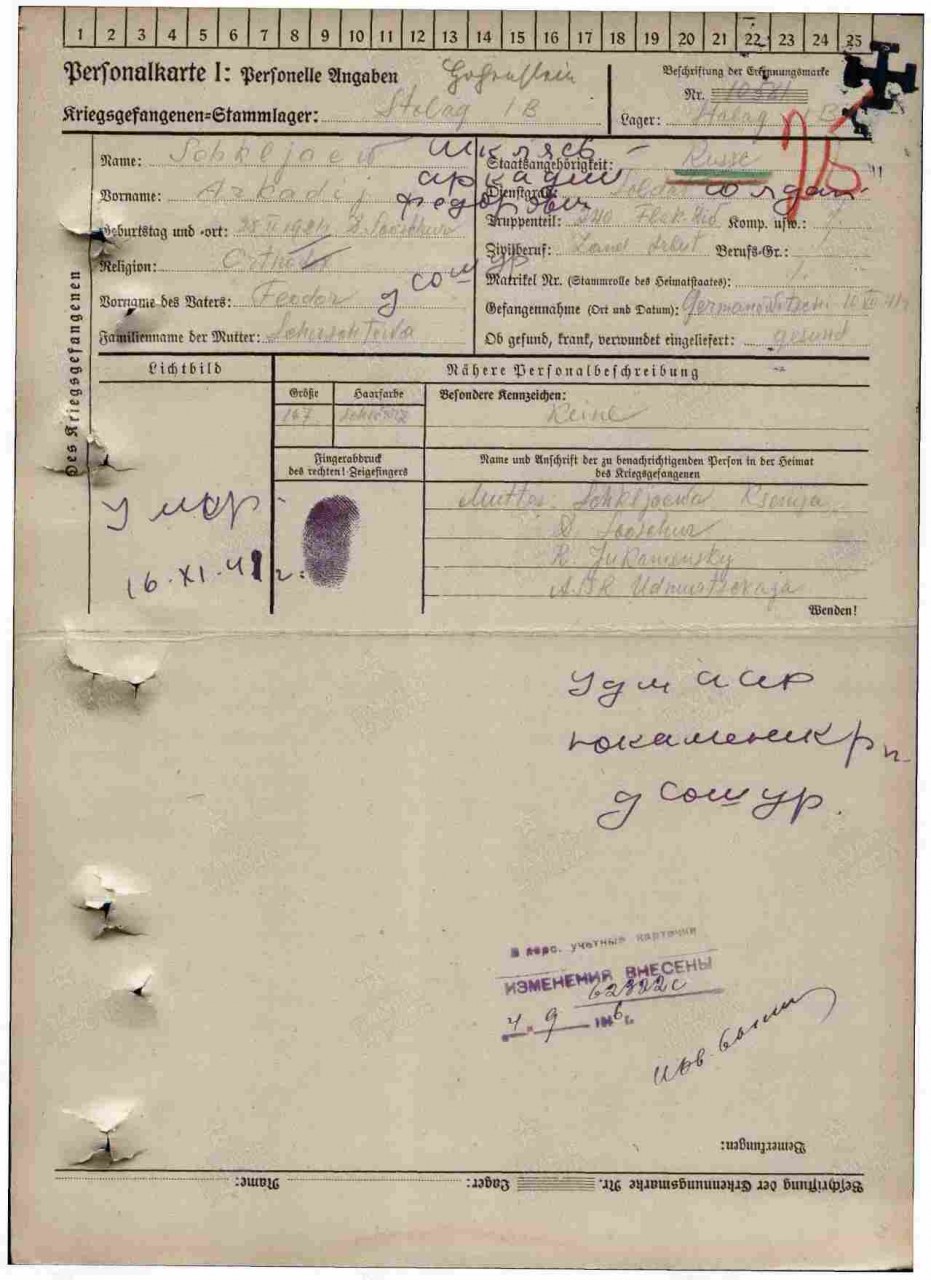 1 2 3 4 5 6 7 8 9 10 11 12 13 14 15 16 17 18 19 20 21 22 23 24 25
Personalkarte I: Personelle Angaben Hohenstein
Beschriftung der Erkennungsmarke
Kriegsgefangenen=Stammlager: Stalag I B
Nr. 10581
Lager: Stalag I B
Des Kriegsgefangenen
Name: Schkljaew Шкляев
Staatsangehörigkeit: Russe
Vorname: Arkadij Аркадий
Dienstgrad: Soldat солдат
Федорович
Geburtstag und =ort:
Truppenteil: Komp. usw.:
Religion: Orthodox
Zivilberuf: Land Arbeit Berufs=Gr.:
д сошур
Matrikel Nr. (Stammrolle des Heimatstaates):
Vorname des Vaters: Feodor
Gefangennahme (Ort und Datum):
Familienname der Mutter:
Ob gesund, krank, verwundet eingeliefert: gesund
Lichtbild
Nähere Personalbeschreibung
Größe Haarfarbe
Besondere Kennzeichen:
167 schwarz
Keine
Fingerabdruck
des rechten! Zeigefingers
Name und Anschrift der zu benachrichtigenden Person in der Heimat
des Kriegsgefangenen
Mutter: Schkljaewa Ksenija
D. Sooschur
R. Jukamensky
ASSR Udmurtskaja
умер
16.XI.41 г.
Wenden!
Удм ССР
Юкаменск р н.
д сошур.
В перс. учетные карточки
ИЗМЕНЕНИЯ ВНЕСЕНЫ
62322с
4. 9 1946 г.
Bemerkungen:
Beschriftung der Erkennungsmarke Nr. Lager: Name: